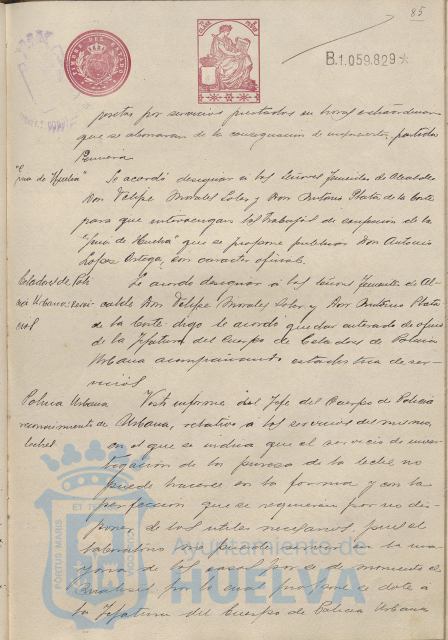 85
TIMBRE DEL ESTADO
B.1.059.829*
pesetas por servicios prestados en horas extraordinarias
que se abonaran de la consignación de imprevistos, partida
Primera
"Guia de Huelva" Se acordó designar a los Señores Tenientes de Alcalde
Don Felipe Morales Soler y Don Antonio Plata de la Corte
para que intervengan los trabajos de de la
"Guia de Huelva" que se propone publicar Don Antonio
Lopez Ortega, con caracter oficial.
Celadores de Poli- Se acordó designar a los Señores Tenientes de Al-
cia Urbana: Servi- calde Don Felipe Morales Soler y Don Antonio Plata
cios de la Corte digo se acordó quedar enterado de oficio
de la Jefatura del Cuerpo de Celadores de Policia
Urbana acompañando estadistica de ser-
vicios
Policia Urbana Visto informe del Jefe del Cuerpo de Policia
reconocimiento de Urbana, relativo a los servicios del mismo,
leches en el que se indica que el servicio de inves-
tigación de la pureza de la leche no
puede hacerse en la forma y con la
perfección que se requieren por no dis-
poner de los utiles necesarios, pues el
laboratorio no puede servir en la ma-
yoria de los casos por de momento el
analisis por lo cual propone se dote a
la Jefatura del Cuerpo de Policia Urbana
PORTUS MARIS ET TERRAE CUSTODIA
Ayuntamiento de
HUELVA